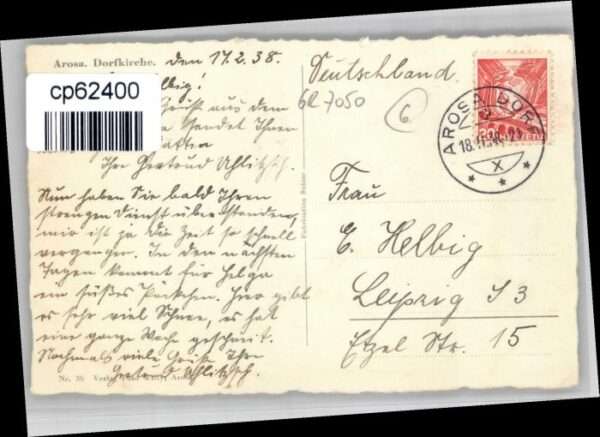 Arosa. Dorfkirche. den 17.2.38.
cp62400
Gruß aus dem
sendet Ihnen
Ihre Gertrud Uhlitzsch.
Nun haben Sie bald Ihren
strengen Dienst überstanden,
mir ist ja die Zeit so schnell
vergangen. In den nächsten
Tagen kommt für Helga
ein süßes Päckchen. Hier gibt
es sehr viel Schnee, es hat
eine ganze Woche geschneit.
Nochmals viele Grüße Ihre
Gertrud Uhlitzsch.
Nr. 35 Verlag
Fabrication Suisse
Deutschland.
GR 7050
6
AROSA DORF
18.II.38.-21
X
Frau
E. Helbig
Leipzig S3
Etzel Str. 15